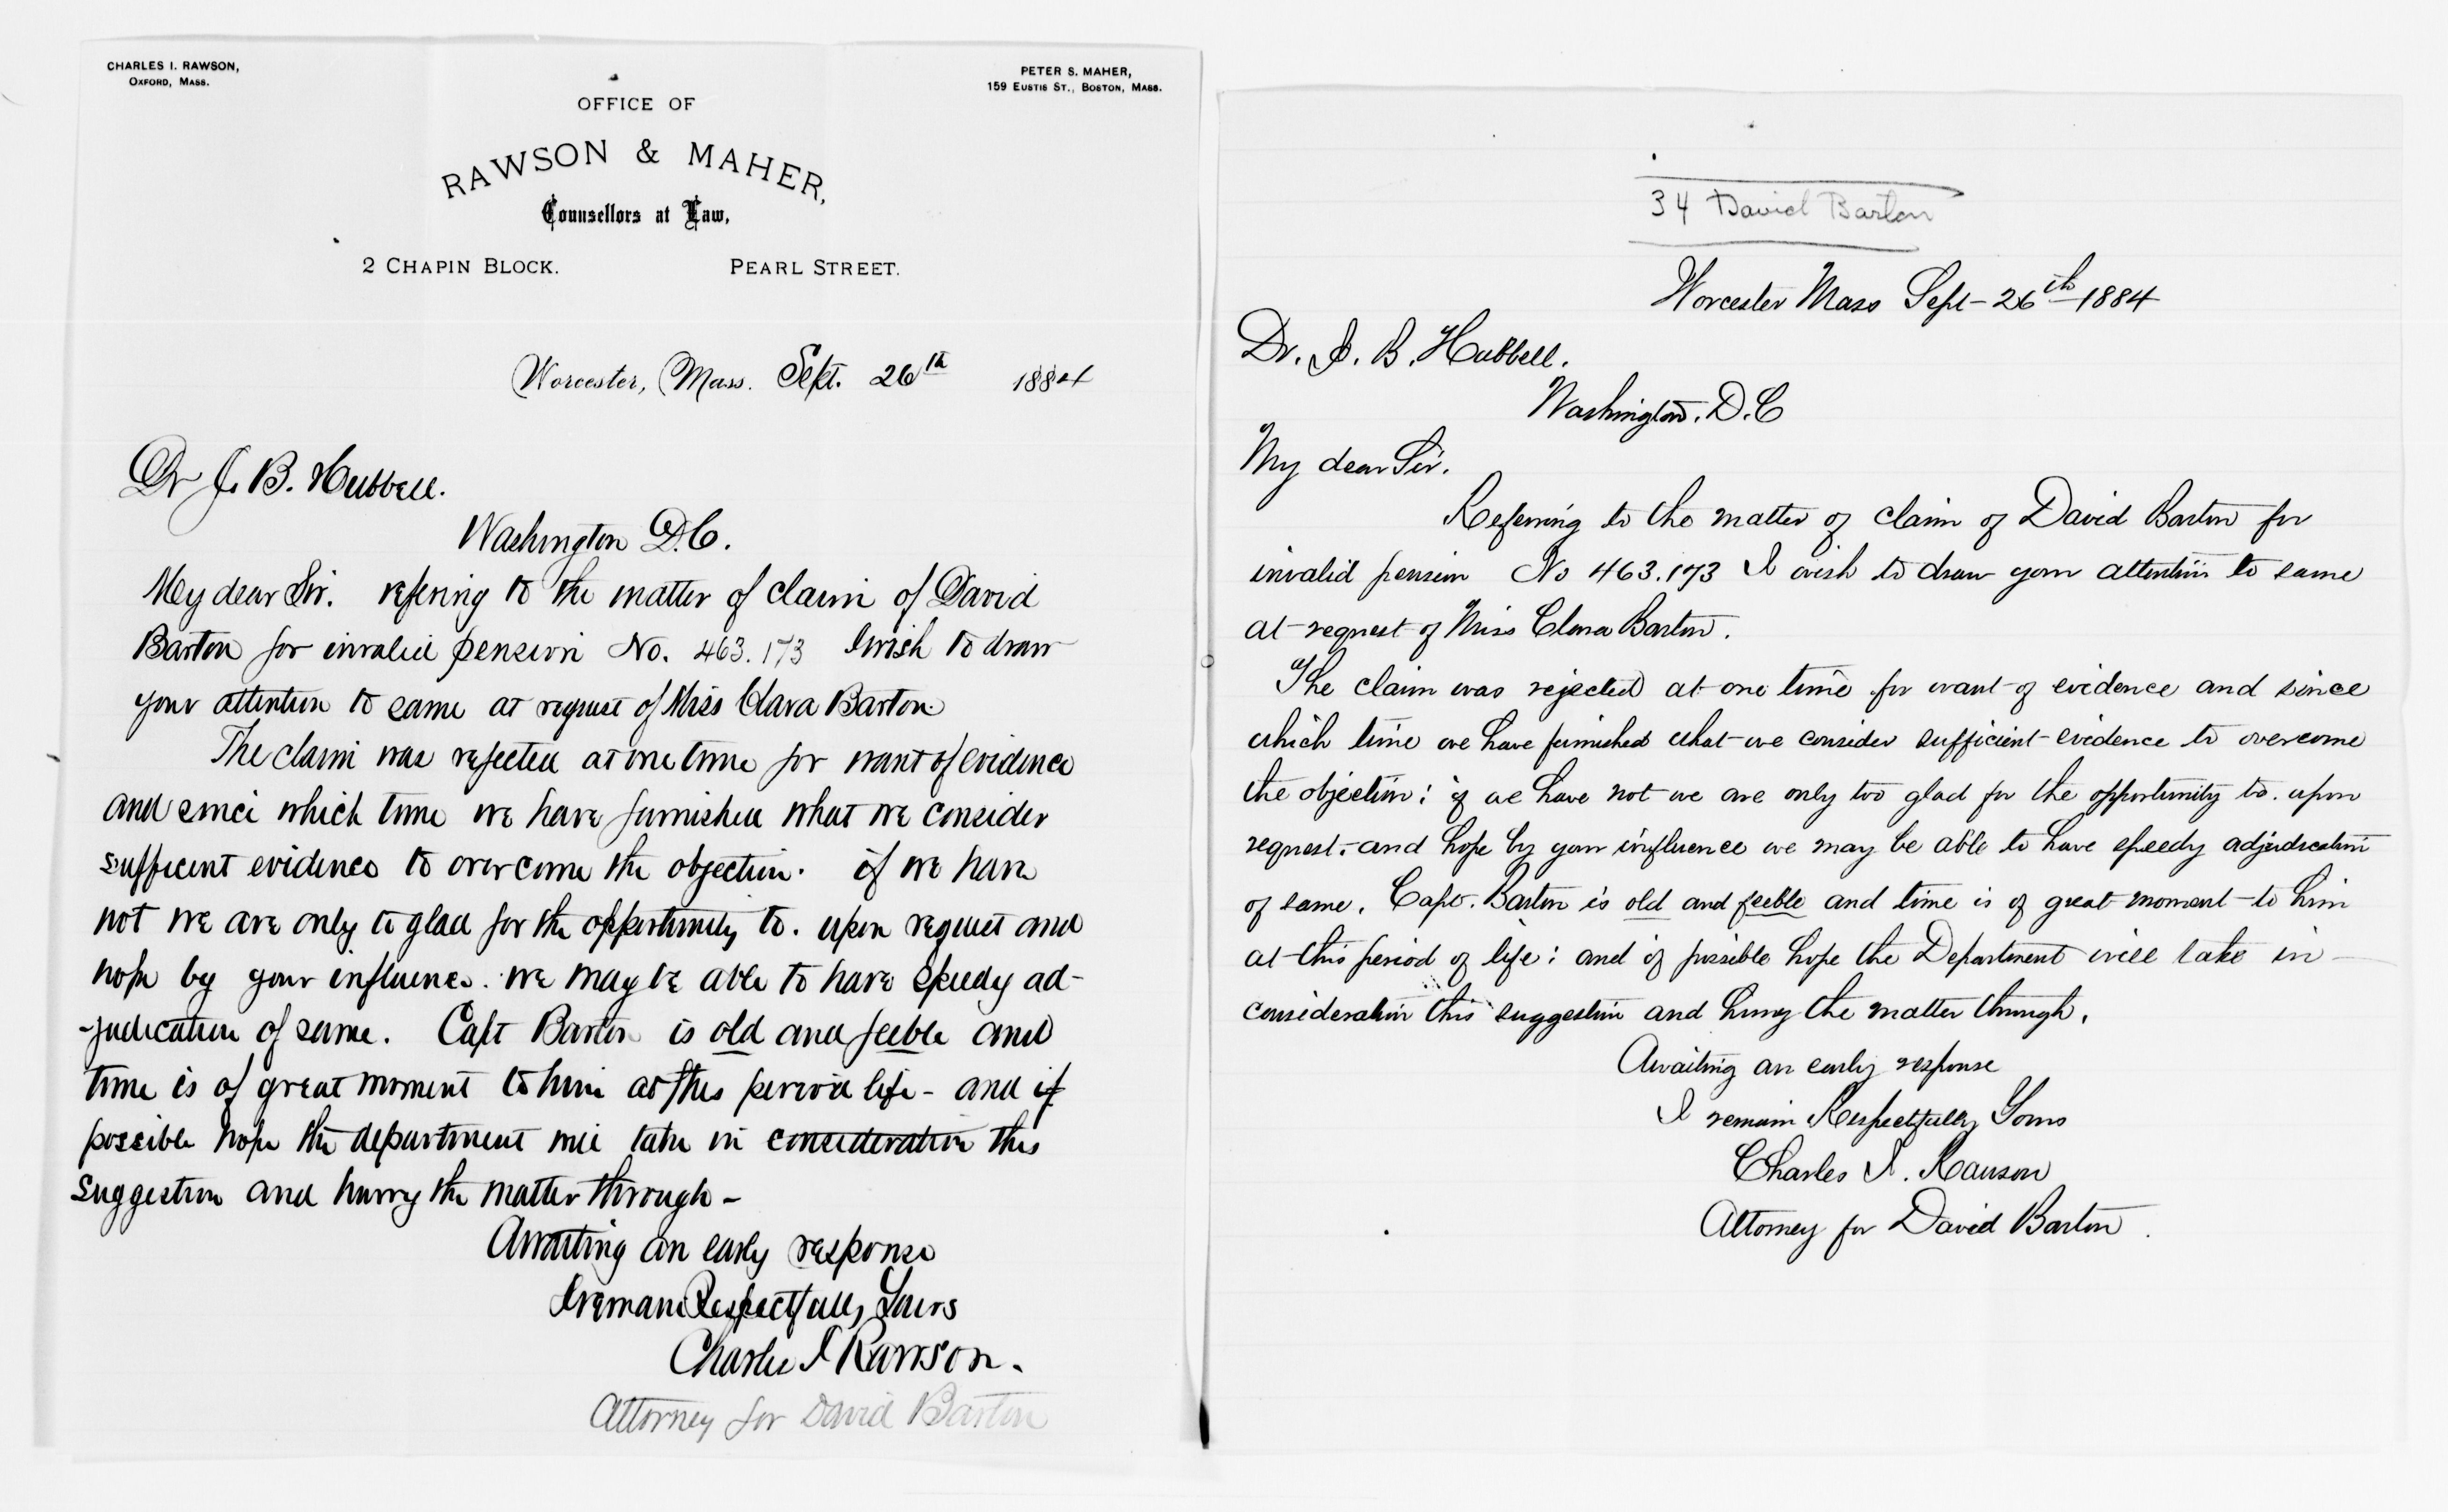 CHARLES I. RAWSON,
OXFORD, MASS.
PETER S. MAHER,
159 EUSTIS ST., BOSTON, MASS.
OFFICE OF
RAWSON & MAHER,
Counsellors at Law,
2 CHAPIN BLOCK. PEARL STREET.
Worcester, Mass. Sept. 26th 1884
Dr J. B. Hubbell.
Washington D.C.
My dear Sir. refering to the matter of claim of David
Barton for invalid pension No. 463.173 I wish to draw
your attention to same at request of Miss Clara Barton.
The claim was rejected at one time for want of evidence
and since which time we have furnished what we consider
sufficent evidence to overcome the objection. if we have
not we are only to glad for the opportunity to. upon request and
hope by your influence. we may be able to have speedy ad-
-judication of same. Capt Barton is old and feeble and
time is of great moment to him at this period life - and if
possible hope the department will take in consideration this
suggestion and hurry the matter through -
Awaiting an early response
I remain Respectfully Yours
Charles I Rawson.
Attorney for David Barton
34 David Barton
Worcester Mass Sept - 26th 1884
Dr. J. B. Hubbell.
Washington. D.C
My dear Sir.
Referring to the matter of claim of David Barton for
invalid pension No 463.173 I wish to draw your attention to same
at request of Miss Clara Barton.
The claim was rejected at one time for want of evidence and since
which time we have furnished what we consider sufficient evidence to overcome
the objection; if we have not we are only too glad for the opportunity to. upon
request. and hope by your influence we may be able to have speedy adjudication
of same. Capt. Barton is old and feeble and time is of great moment to him
at this period of life; and if possible hope the Department will take in
consideration this suggestion and hurry the matter through.
Awaiting an early response
I remain Respectfully Yours
Charles I. Rawson
Attorney for David Barton.